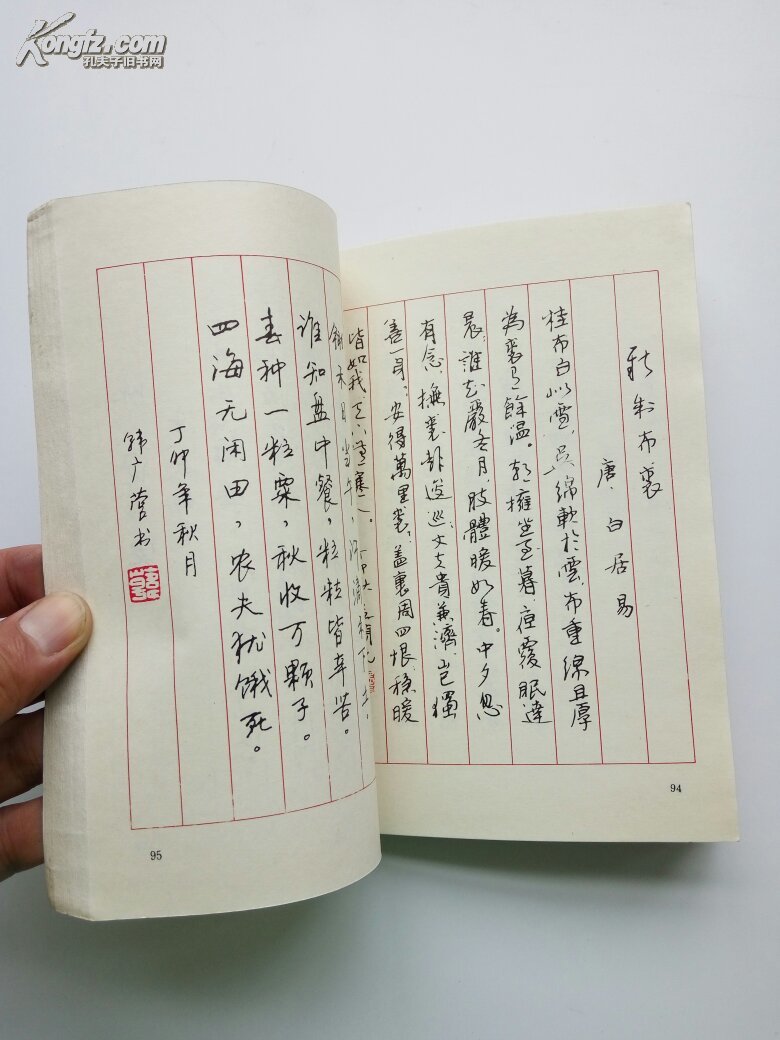 Kongfz.com
孔夫子旧书网
新制布裘
唐·白居易
桂布白似雪，吴綿軟於雲。布重綿且厚
為裘有餘温。朝擁坐至暮，夜覆眠達
晨。誰知嚴冬月，肢體暖如春。中夕忽
有念，撫裘起逡巡。丈夫貴兼濟，豈獨
善一身。安得萬里裘，盖裹周四垠。稳暖
皆如我，天下無寒人。
94
锄禾日当午，汗滴禾下土。
谁知盘中餐，粒粒皆辛苦。
春种一粒粟，秋收万颗子。
四海无闲田，农夫犹饿死。
丁卯年秋月
韩广营书
95